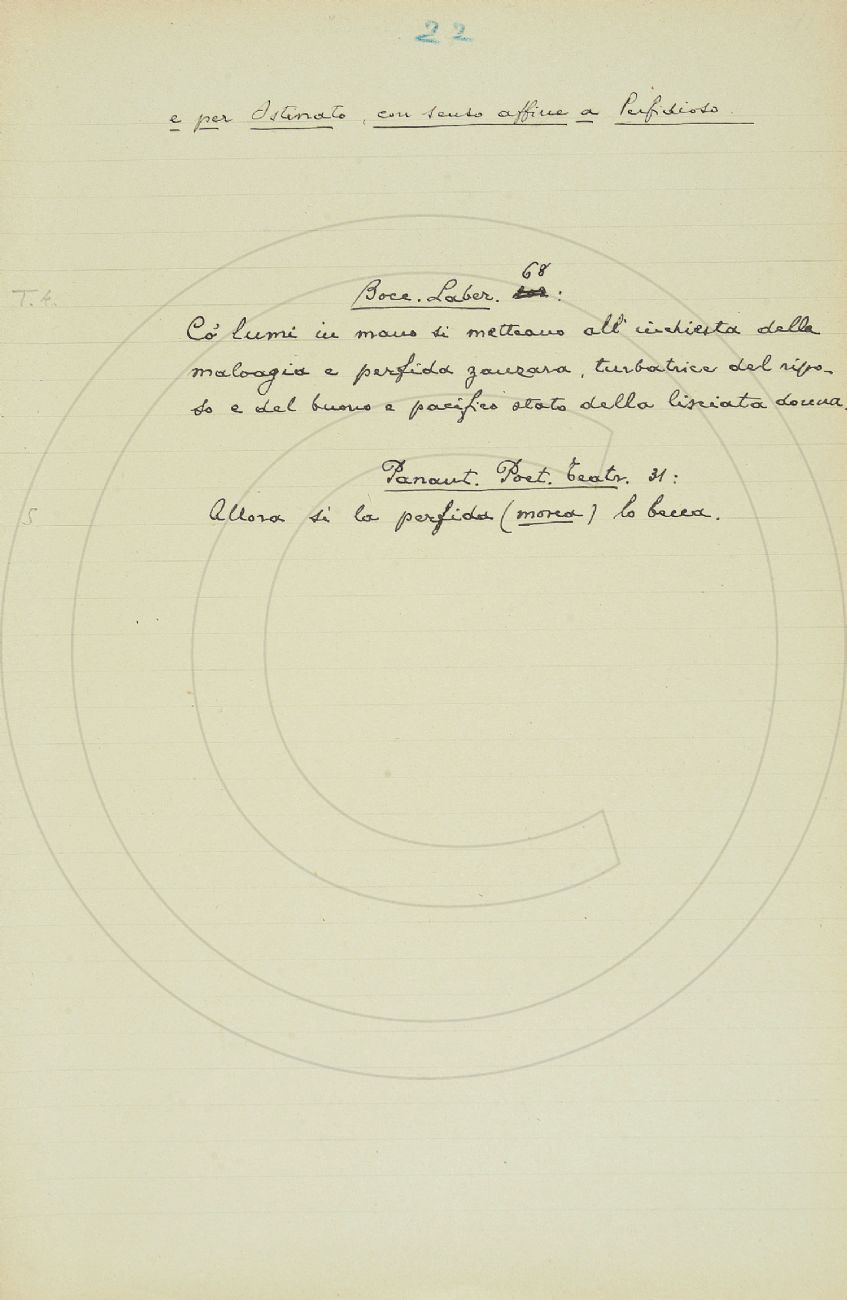 22
e per Ostinato, con senso affine a Perfidioso.
68
T. 4. Bocc. Laber. :
Co' lumi in mano si metteano all'inchiesta della
malvagia e perfida zanzara, turbatrice del ripo-
so e del buono e pacifico stato della lisciata donna.
Panant. Poet. Teatr. 31:
5 Allora sì la perfida (mosca) lo becca.